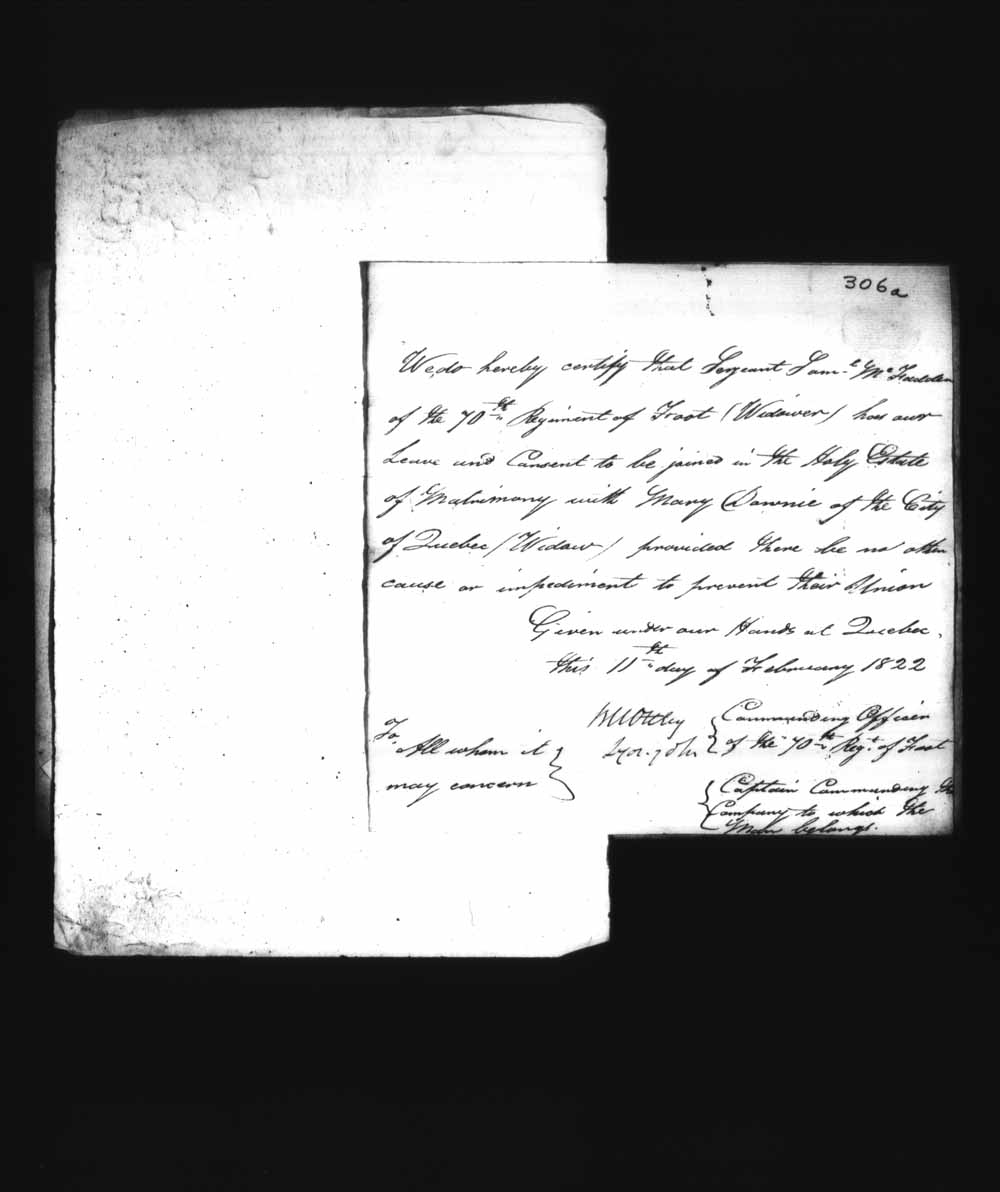 306a
We do hereby certify that Sergeant Saml. McFadden
of the 70th Regiment of Foot (Widower) has our
Leave and Consent to be joined in the Holy Estate
of Matrimony with Mary Downie of the City
of Quebec (Widow) provided there be no other
cause or impediment to prevent their Union
Given under our Hands at Quebec,
this 11th day of February 1822
Commanding Officer
of the 70th Regt. of Foot
To
All whom it
may concern
Captain Commanding the
Company to which the
Man belongs.